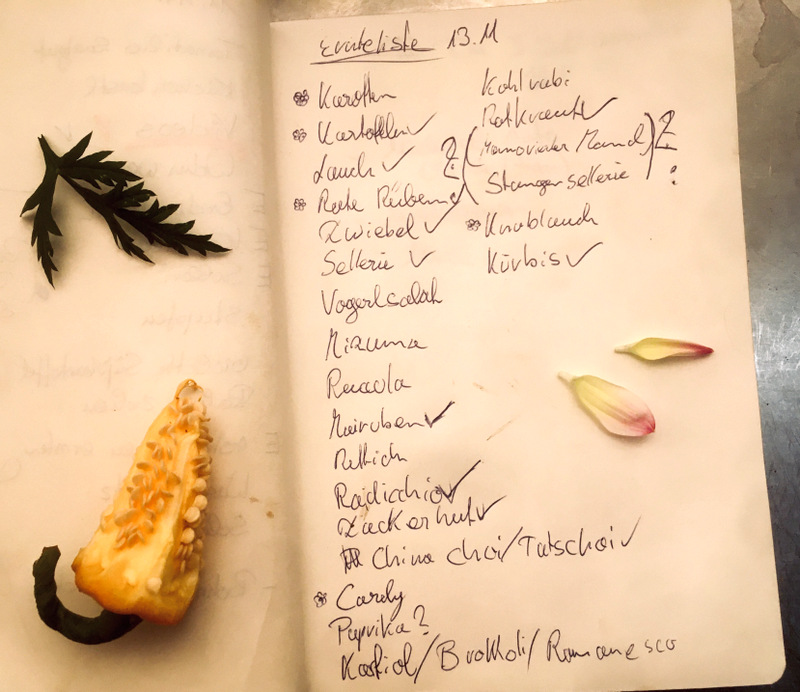 Ernteliste 13.11
Karotten
Kartoffeln ✓
Lauch ✓
Rote Rüben
Zwiebel ✓
Sellerie ✓
Vogerlsalat
Mizuna
Rucola
Mairuben ✓
Rettich
Radicchio ✓
Zuckerhut ✓
China choi/Tatschoi ✓
Cardy
Paprika?
Karfiol/Brokkoli/Romanesco
Kohlrabi
Rotkraut ✓
Stangensellerie
Knoblauch
Kürbis ✓